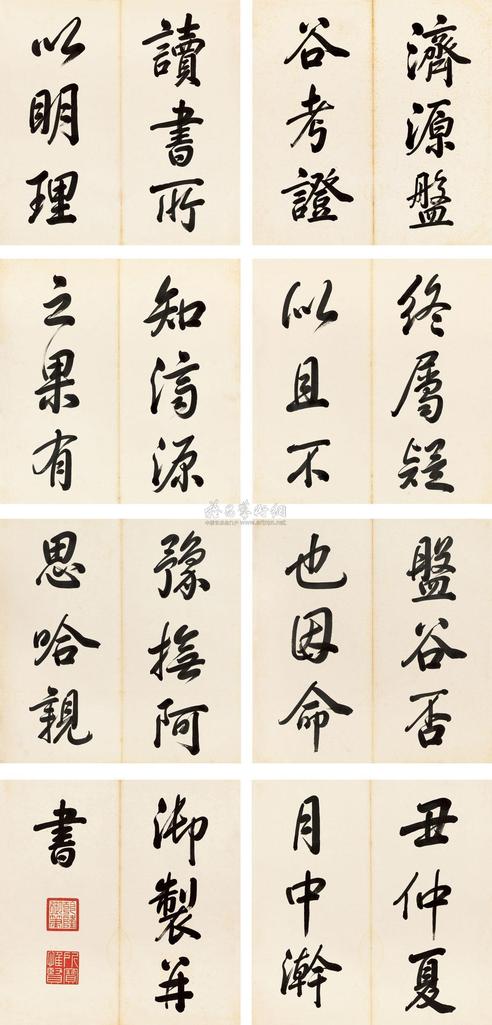 濟源盤
谷考證
讀書所
以明理
終屬疑
似且不
知濟源
之果有
盤谷否
也因命
豫撫阿
思哈親
丑仲夏
月中澣
御製并
書
所寶
惟賢
www.artron.net